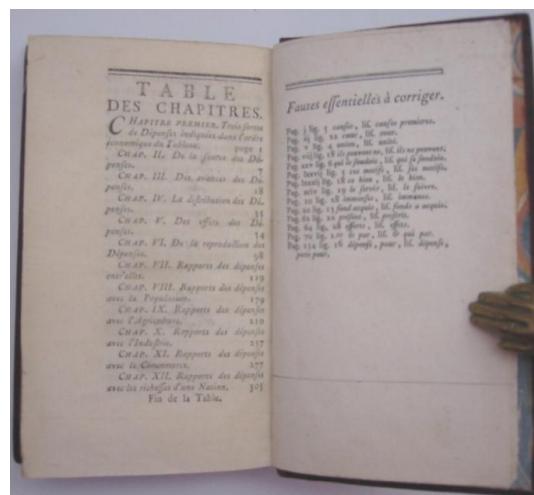 TABLE
DES CHAPITRES.
CHAPITRE PREMIER. Trois sortes
de Dépenses indiquées dans l'ordre
économique du Tableau. page 1
CHAP. II. De la source des Dé-
penses. 7
CHAP. III. Des avances des Dé-
penses. 18
CHAP. IV. La distribution des Dé-
penses. 35
CHAP. V. Des effets des Dé-
penses. 54
CHAP. VI. De la reproduction des
Dépenses. 98
CHAP. VII. Rapports des dépenses
entr'elles. 129
CHAP. VIII. Rapports des dépenses
avec la Population. 179
CHAP. IX. Rapports des dépenses
avec l'Agriculture. 210
CHAP. X. Rapports des dépenses
avec l'Industrie. 257
CHAP. XI. Rapports des dépenses
avec le Commerce. 277
CHAP. XII. Rapports des dépenses
avec les richesses d'une Nation. 305
Fin de la Table.
Fautes essentielles à corriger.
Pag. j lig. 5 causes, lis. causes premieres.
Pag. iij lig. 22 cœur, lis. cour.
Pag. v lig. 4 union, lis. unité.
Pag. viij lig. 18 ils peuvent ne, lis. ils ne peuvent.
Pag. xxv lig. 6 qui se soudoie, lis. qui se soudoie.
Pag. lxxvij lig. 5 ces motifs, lis. ses motifs.
Pag. lxxxij lig. 18 ce bien, lis. le bien.
Pag. xciv lig. 19 le servir, lis. le suivre.
Pag. 20 lig. 28 immenses, lis. immense.
Pag. 20 lig. 13 fond acquis, lis. fonds a acquis.
Pag. 62 lig. 22 présent, lis. présents.
Pag. 64 lig. 28 efforts, lis. effets.
Pag. 70 lig. par, lis. & qui par.
Pag. 134 lig. 16 dépense, pour, lis. dépense,
parce pour.